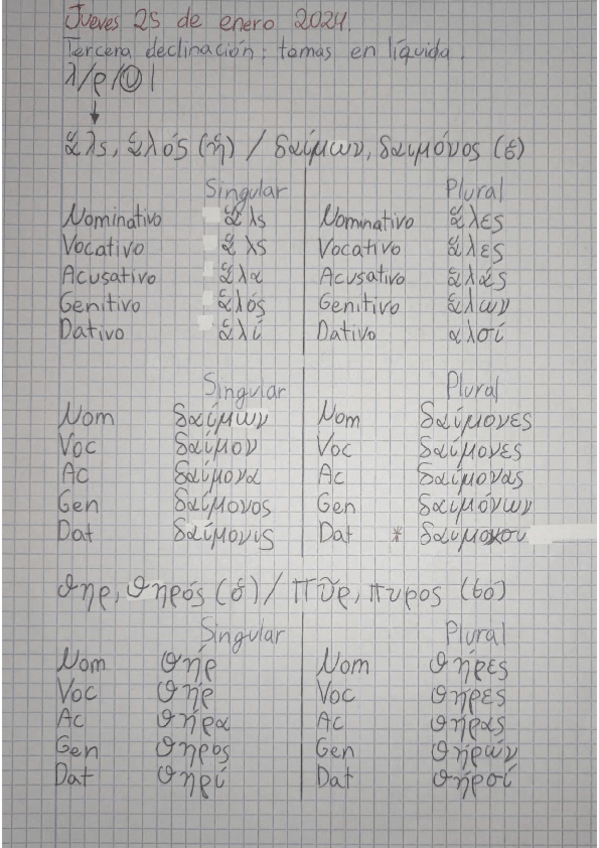 Jueves 25 de enero 2024.
Tercera declinación: temas en líquida.
λ/ρ/ν
ἅλς, ἁλός (ἡ) / δαίμων, δαιμόνος (ὁ)
Singular Plural
Nominativo ἅλς Nominativo ἅλες
Vocativo ἅλς Vocativo ἅλες
Acusativo ἅλα Acusativo ἅλάς
Genitivo ἁλός Genitivo ἅλων
Dativo ἁλί Dativo αλσί
Singular Plural
Nom δαίμων Nom δαίμονες
Voc δαίμον Voc δαίμονες
Ac δαίμονα Ac δαίμονας
Gen δαίμονος Gen δαίμόνων
Dat Dat *
θηρ, θηρός (ὁ) / πῦρ, πυρος (το)
Singular Plural
Nom θήρ Nom θήρες
Voc θήρ Voc θήρες
Ac θήρα Ac θήρας
Gen θηρος Gen θήρών
Dat θηρί Dat θήρσί